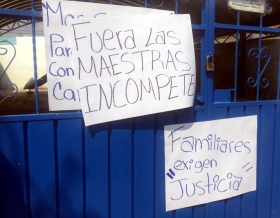 Fuera las
MAESTRAS
INCOMPETE
Familiares
"exigen
Justicia"